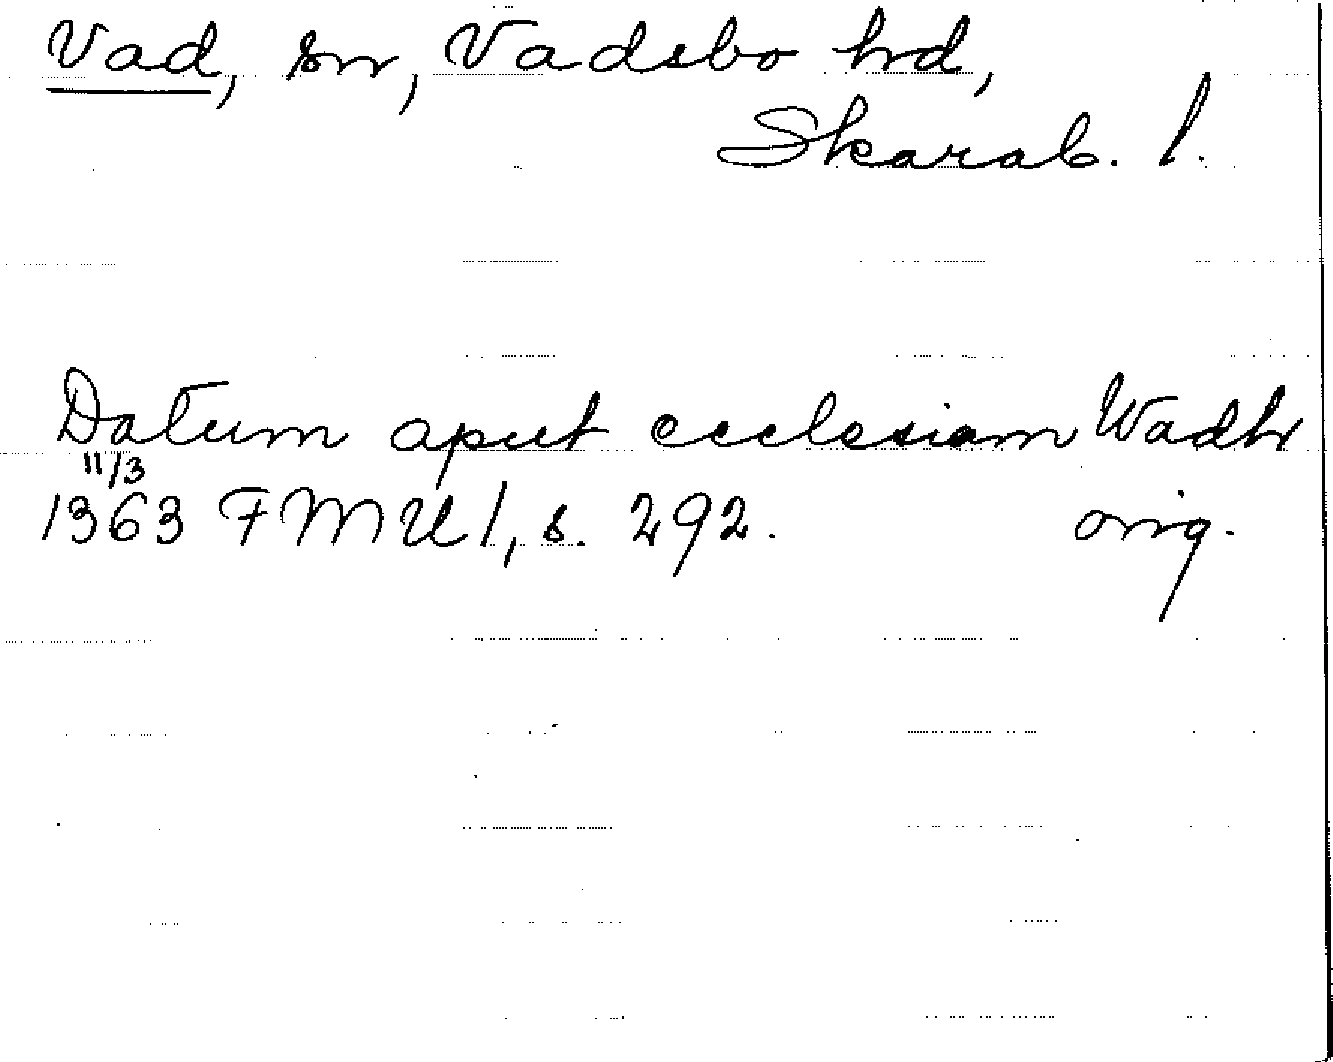 Vad, sn, Vadsbo hd,
Skarab. l.
Datum aput ecclesiam Wadh
11/3
1363 FMU 1, s. 292. orig.